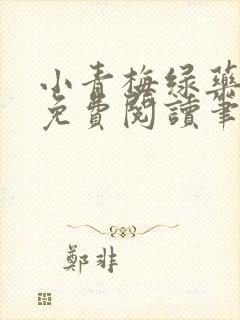 小青梅绿药
免費閱讀筆
鄭非